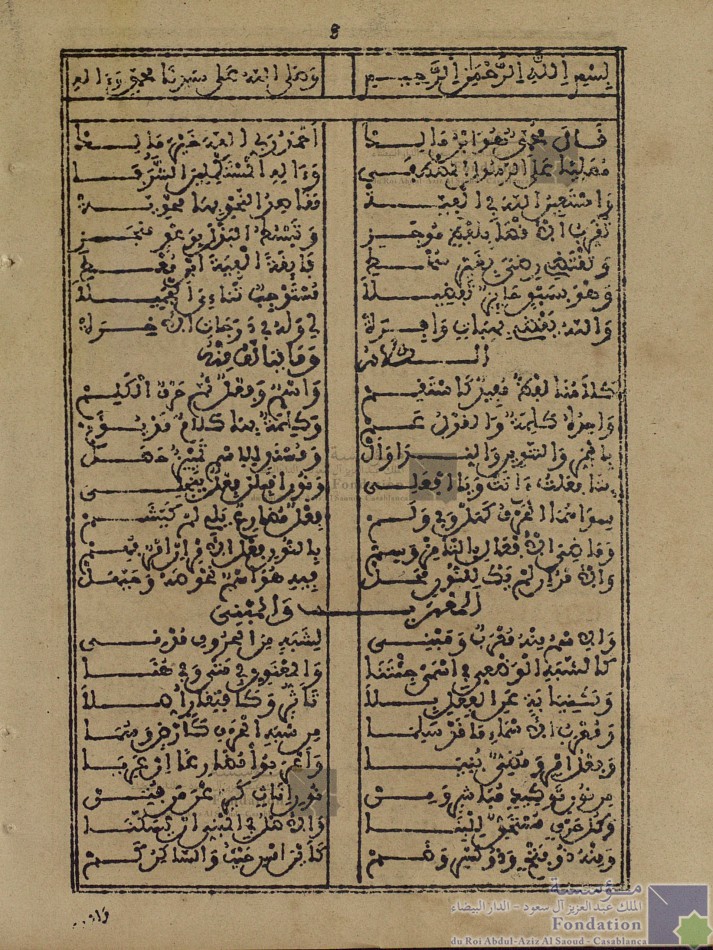 8
بسم الله الرحمن الرحيم وصلى الله على سيدنا محمد وءاله
قال محمد هو ابن مالك احمد ربي الله خير مالك
مصليا على الرسول المصطفى وءاله المستكملين الشرفا
واستعين الله في الفيه مقاصد النحو بها محويه
تقرب الاقصى بلفظ موجز وتبسط البذل بوعد منجز
وتقتضي رضى بغير سخط فايقة الفية ابن معط
وهو بسبق حايز تفضيلا مستوجب ثناءي الجميلا
والله يقضي بهبات وافره لي وله في درجات الاخره
الكلام وما يتالف منه
كلامنا لفظ مفيد كاستقم واسم وفعل ثم حرف الكلم
واحده كلمة والقول عم وكلمة بها كلام قد يوم
بالجر والتنوين والندا وال ومسند للاسم تمييز حصل
بتا فعلت وأتت ويا افعلي ونون اقبلن فعل ينجلي
سواهما الحرف كهل وفي ولم فعل مضارع يلي لم كيشم
وماضي الافعال بالتا مز وسم بالنون فعل الامر ان امر فهم
والامر ان لم يك للنون محل فيه هو اسم نحو صه وحيهل
المعرب والمبني
والاسم منه معرب ومبني لشبه من الحروف مدني
كالشبه الوضعي في اسمي جئتنا والمعنوي في متى وفي هنا
وكنيابة عن الفعل بلا تاثر وكافتقار اصلا
ومعرب الاسماء ما قد سلما من شبه الحرف كارض وسما
وفعل امر ومضي بنيا واعربوا مضارعا ان عريا
من نون توكيد مباشر ومن نون اناث كيرعن من فتن
وكل حرف مستحق للبنا والاصل في المبني ان يسكنا
ومنه ذو فتح وذو كسر وضم كاين امس حيث والساكن كم
مؤسسة
الملك عبد العزيز آل سعود - الدار البيضاء
Fondation
du Roi Abdul-Aziz Al Saoud - Casablanca